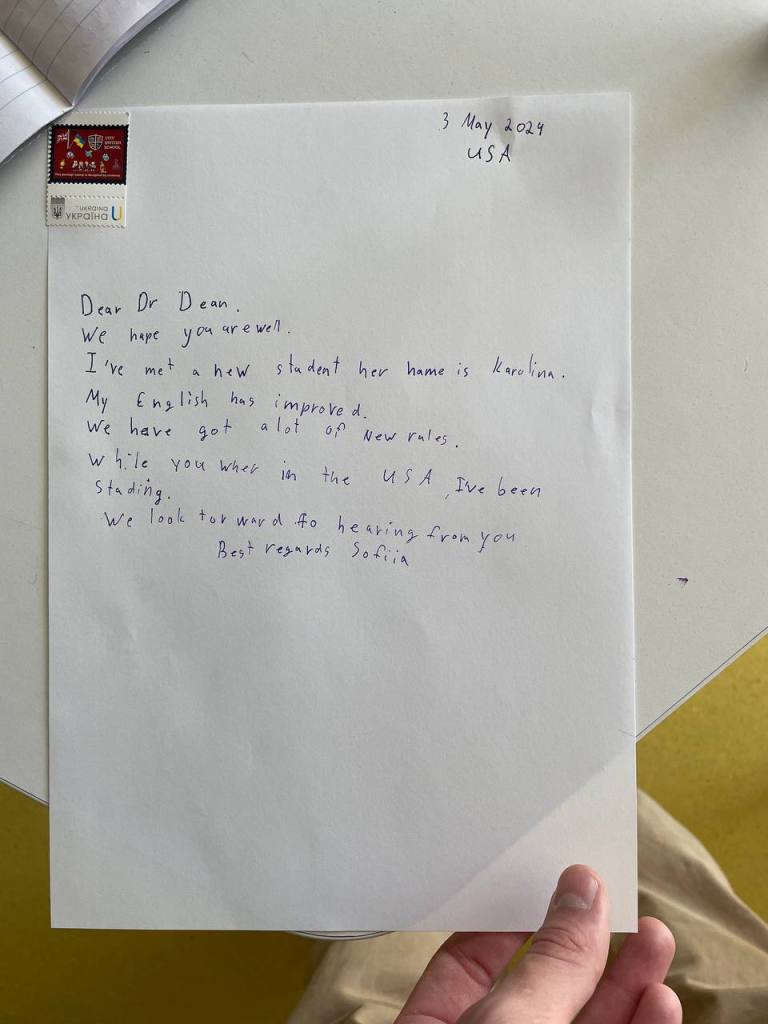 3 May 2024
USA
LVIV
BRITISH
SCHOOL
UKRAINA
УКРАЇНА
Dear Dr Dean.
We hape you are well.
I've met a new student her name is Karolina.
My English has improved.
We have got alot of New rules.
While you wher in the USA, I've been
Stading.
We look forward to hearing from you
Best regards Sofiia